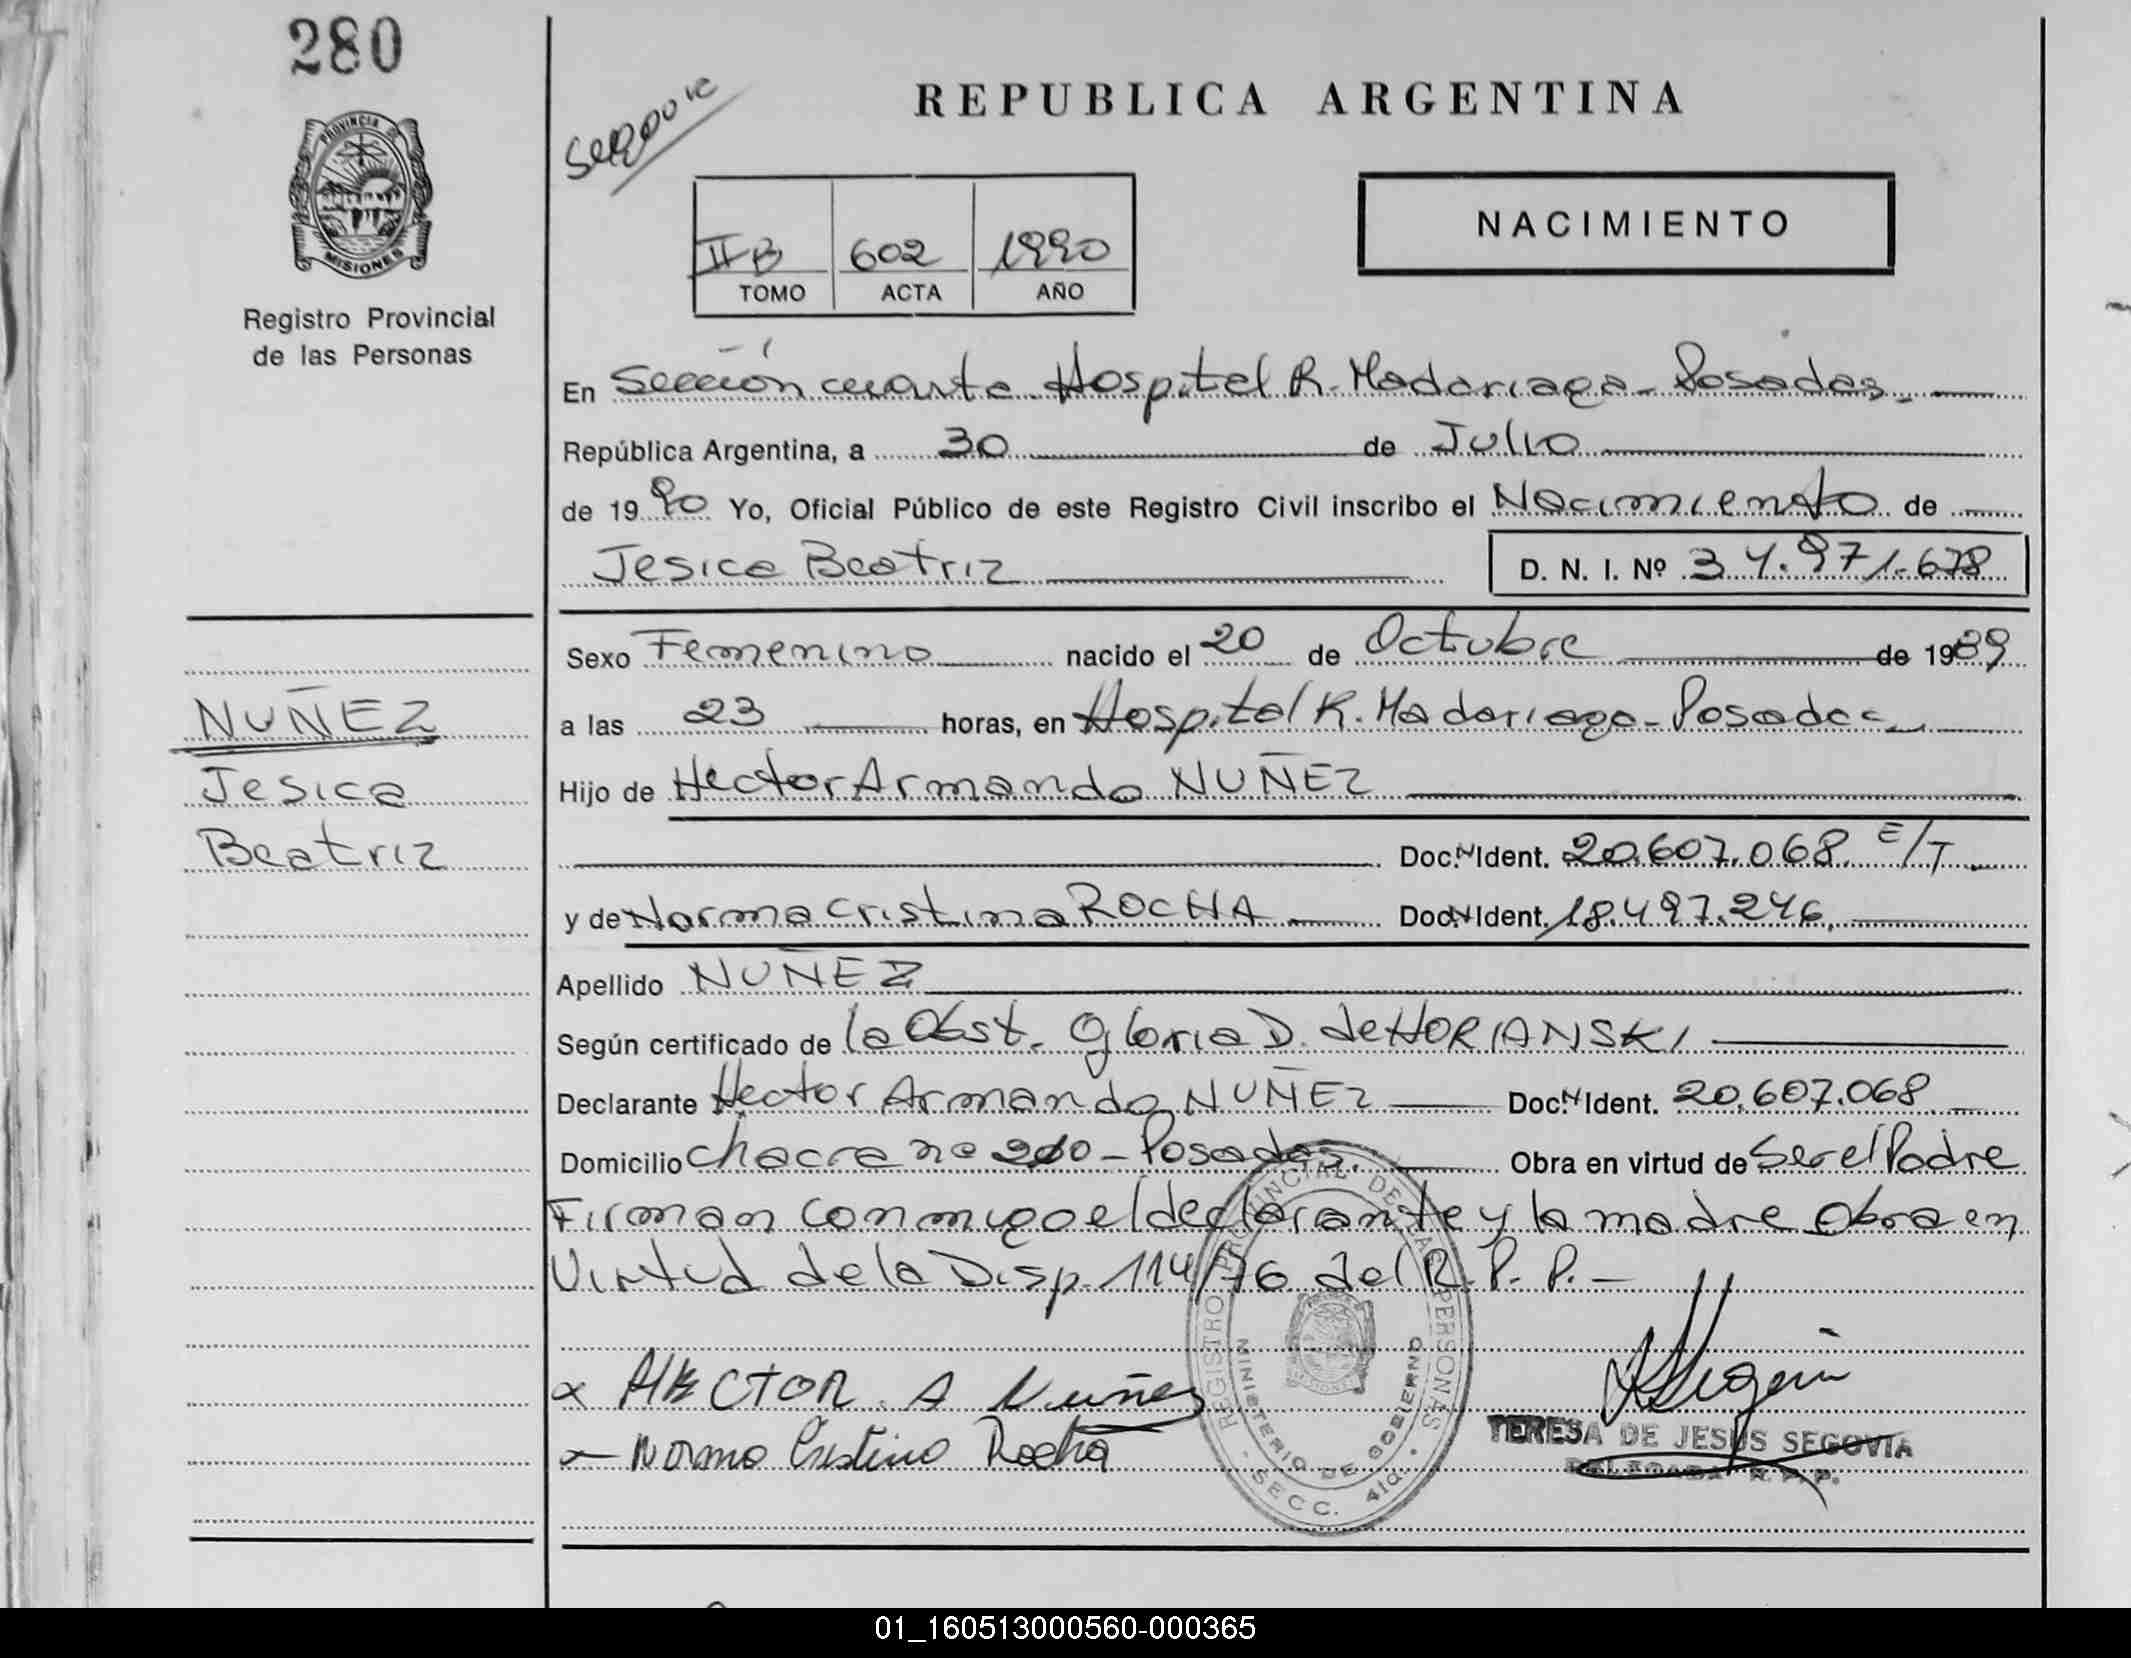 280
PROVINCIA DE
MISIONES
Registro Provincial
de las Personas
REPUBLICA ARGENTINA
NACIMIENTO
II B 602 1990
TOMO ACTA AÑO
En Sección cuarta Hospital R. Madariaga - Posadas.
República Argentina, a 30 de Julio
de 1990 Yo, Oficial Público de este Registro Civil inscribo el Nacimiento de
Jesica Beatriz D. N. I. Nº 34.971.678
Sexo Femenino nacido el 20 de Octubre de 1989
a las 23 horas, en Hospital R. Madariaga - Posadas
Hijo de Hector Armando NUÑEZ
Doc. N Ident. 20.607.068 E/T
y de Norma Cristina ROCHA Doc. N Ident. 18.497.246.
Apellido NUÑEZ
Según certificado de la Obst. Gloria D. de HORIANSKI
Declarante Hector Armando NUÑEZ Doc. N Ident. 20.607.068
Domicilio chacra nº - Posadas. Obra en virtud de Ser el Padre
Firman conmigo el declarante y la madre Obra en
Virtud de la Disp. 114/76 del R. P. P. -
NUÑEZ
Jesica
Beatriz
HECTOR. A Nuñez
Norma Cristina Rocha
REGISTRO PROVINCIAL DE LAS PERSONAS
MINISTERIO DE GOBIERNO
- SECC. 4ta. -
TERESA DE JESUS SEGOVIA
DELEGADA R. P. P.
01_160513000560-000365